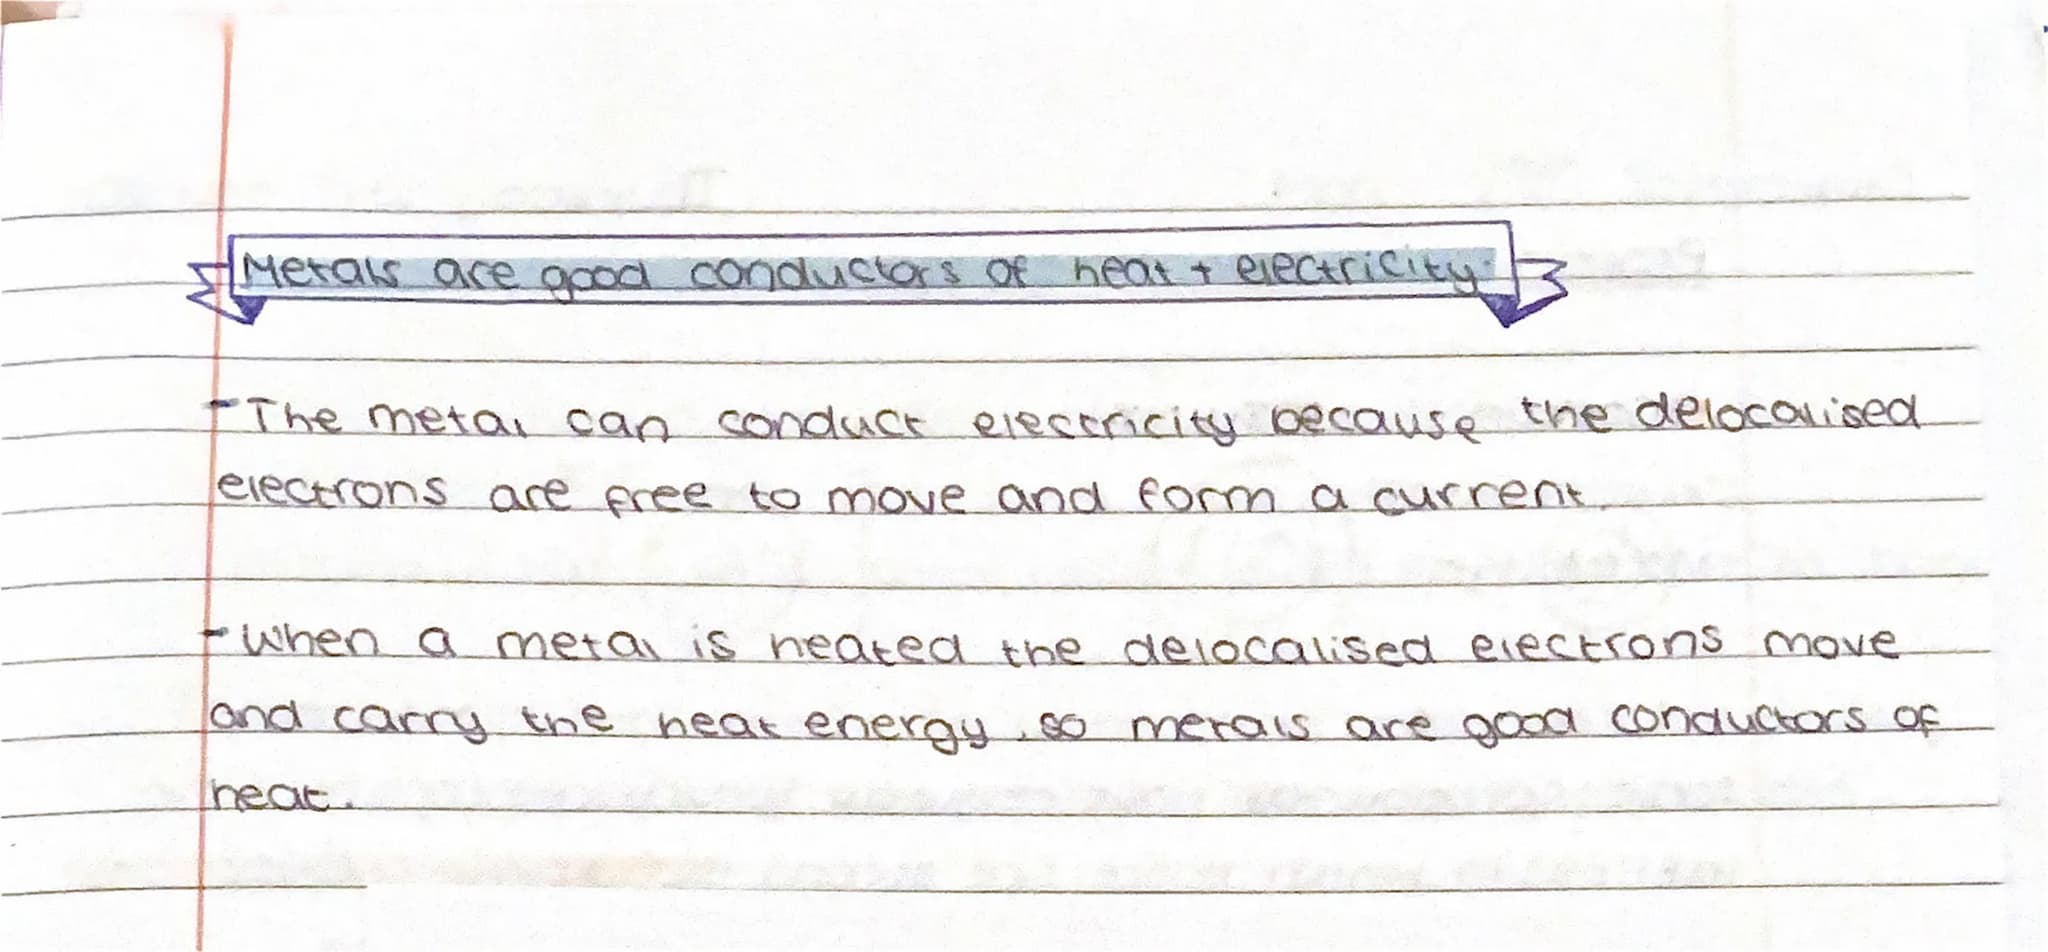 Metals are good conductors of heat + electricity.
- The metal can conduct electricity because the delocalised
electrons are free to move and form a current.
- When a metal is heated the delocalised electrons move
and carry the heat energy, so metals are good conductors of
heat.